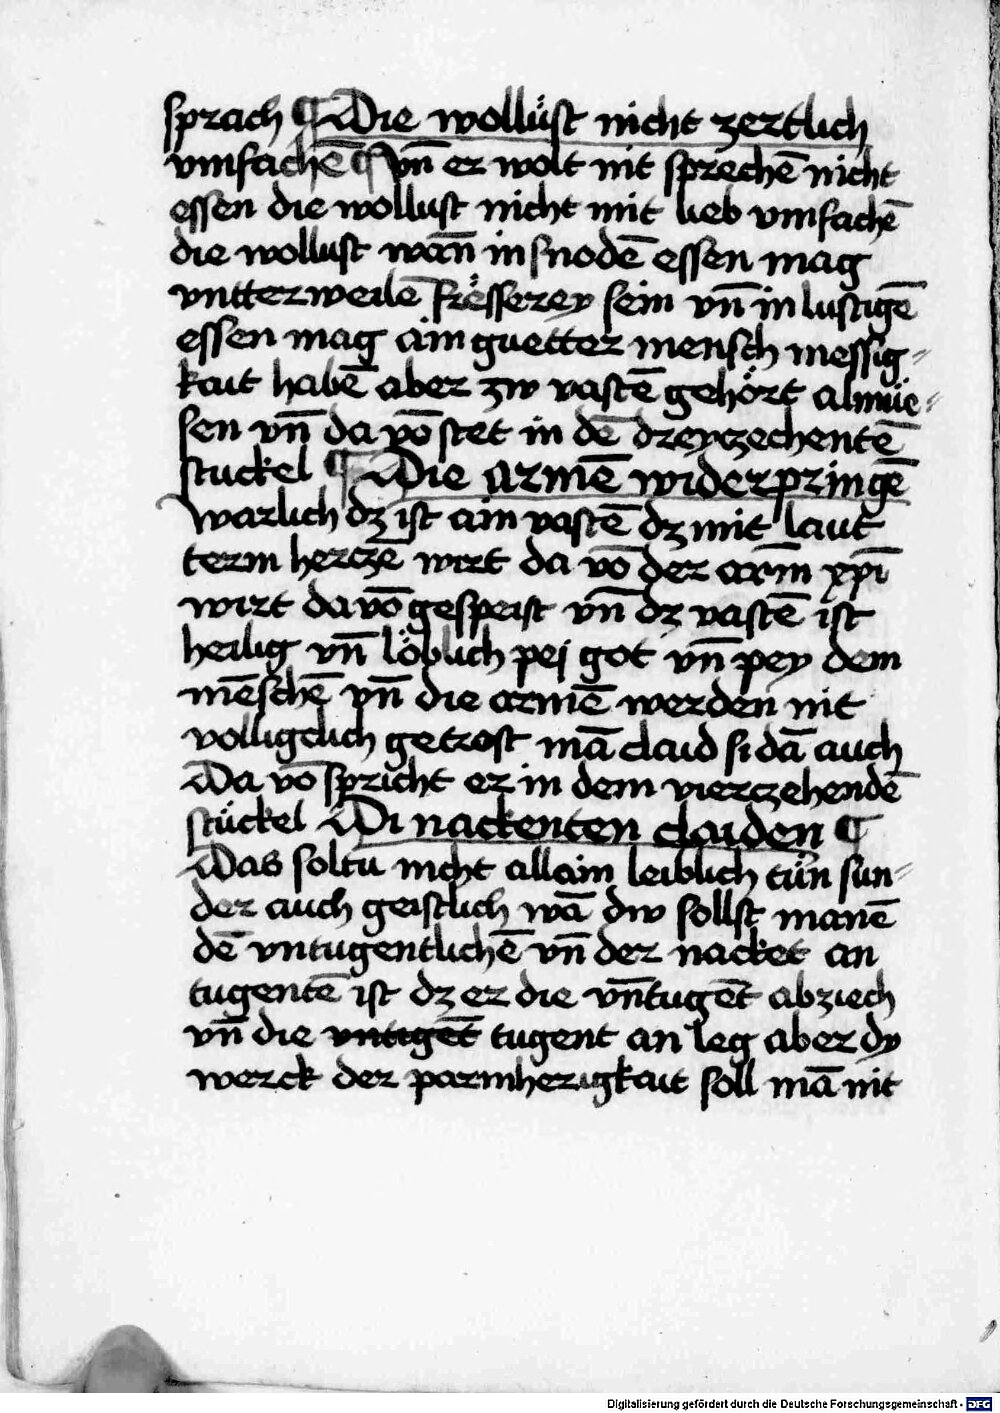 sprach ¶ Die wollüst nicht zertlich
vmfachē ¶ Vn̄ er wolt nit sprechē nicht
essen die wollust nicht mit lieb vmfachē
die wollust wan̄ in snodē essen mag
vntterweilē frësserey sein vn̄ in lustigē
essen mag ain guetter mensch messig=
kait habē aber zw vastē gehört almüe=
sen vn̄ da vō stet in dē dreyczechentē
stuckel ¶ Die armē widerpringē
Warlich dz ist ain vastē dz mit laut
term herczē wirt da vō der arm̄ xp̄i
wirt da vō gespeist vn̄ dz vastē ist
heilig vn̄ löblich pej got vn̄ pey dem
mēschē vn̄ die armē werden nit
volligclich getrost mā claid si dā auch
Da vō spricht er in dem vierczehendē
stückel Di nackenten claiden ¶
Das soltu nicht allain leiblich tün sun=
der auch geistlich wā dw sollst manē
dē vntugentlichē vn̄ der nacket an
tugentē ist dz er die vn̄tugēt abziech
vn̄ die vntigēt tugent an leg aber dy
werck der parmherzigkait soll mā nit
Digitalisierung gefördert durch die Deutsche Forschungsgemeinschaft - DFG